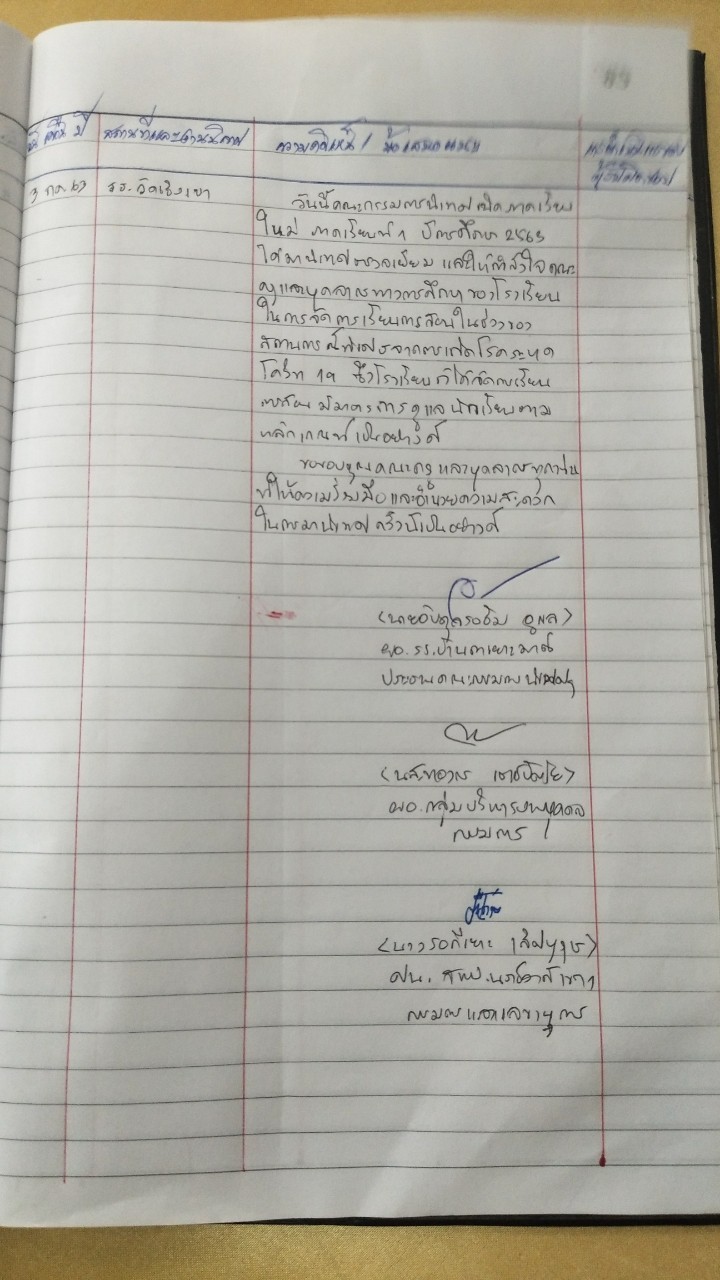 วัน เดือน ปี
สถานที่และงานนิเทศ
ความคิดเห็น / ข้อเสนอแนะ
3 กค 63
รร. วัดเชิงเขา
วันนี้คณะกรรมการนิเทศเปิดภาคเรียน
ใหม่ ภาคเรียนที่ 1 ปีการศึกษา 2563
ได้มานิเทศตรวจเยี่ยม และให้กำลังใจคณะ
ครูและบุคลากรทางการศึกษาของโรงเรียน
ในการจัดการเรียนการสอนในช่วงของ
สถานการณ์พิเศษจากการเกิดโรคระบาด
โควิท 19 ซึ่งโรงเรียนก็ได้จัดการเรียน
การสอน มีมาตรการดูแลนักเรียนตาม
หลักเกณฑ์เป็นอย่างดี
ขอขอบคุณคณะครู และบุคลากรทุกท่าน
ที่ให้ความร่วมมือและอำนวยความสะดวก
ในการมานิเทศครั้งนี้เป็นอย่างดี
ผอ. รร. บ้าน
ประธานคณะกรรมการนิเทศฯ
ผอ. กลุ่มบริหารงานบุคคล
กรรมการ
ศน. สพป. นราธิวาส เขต 1
กรรมการและเลขานุการ